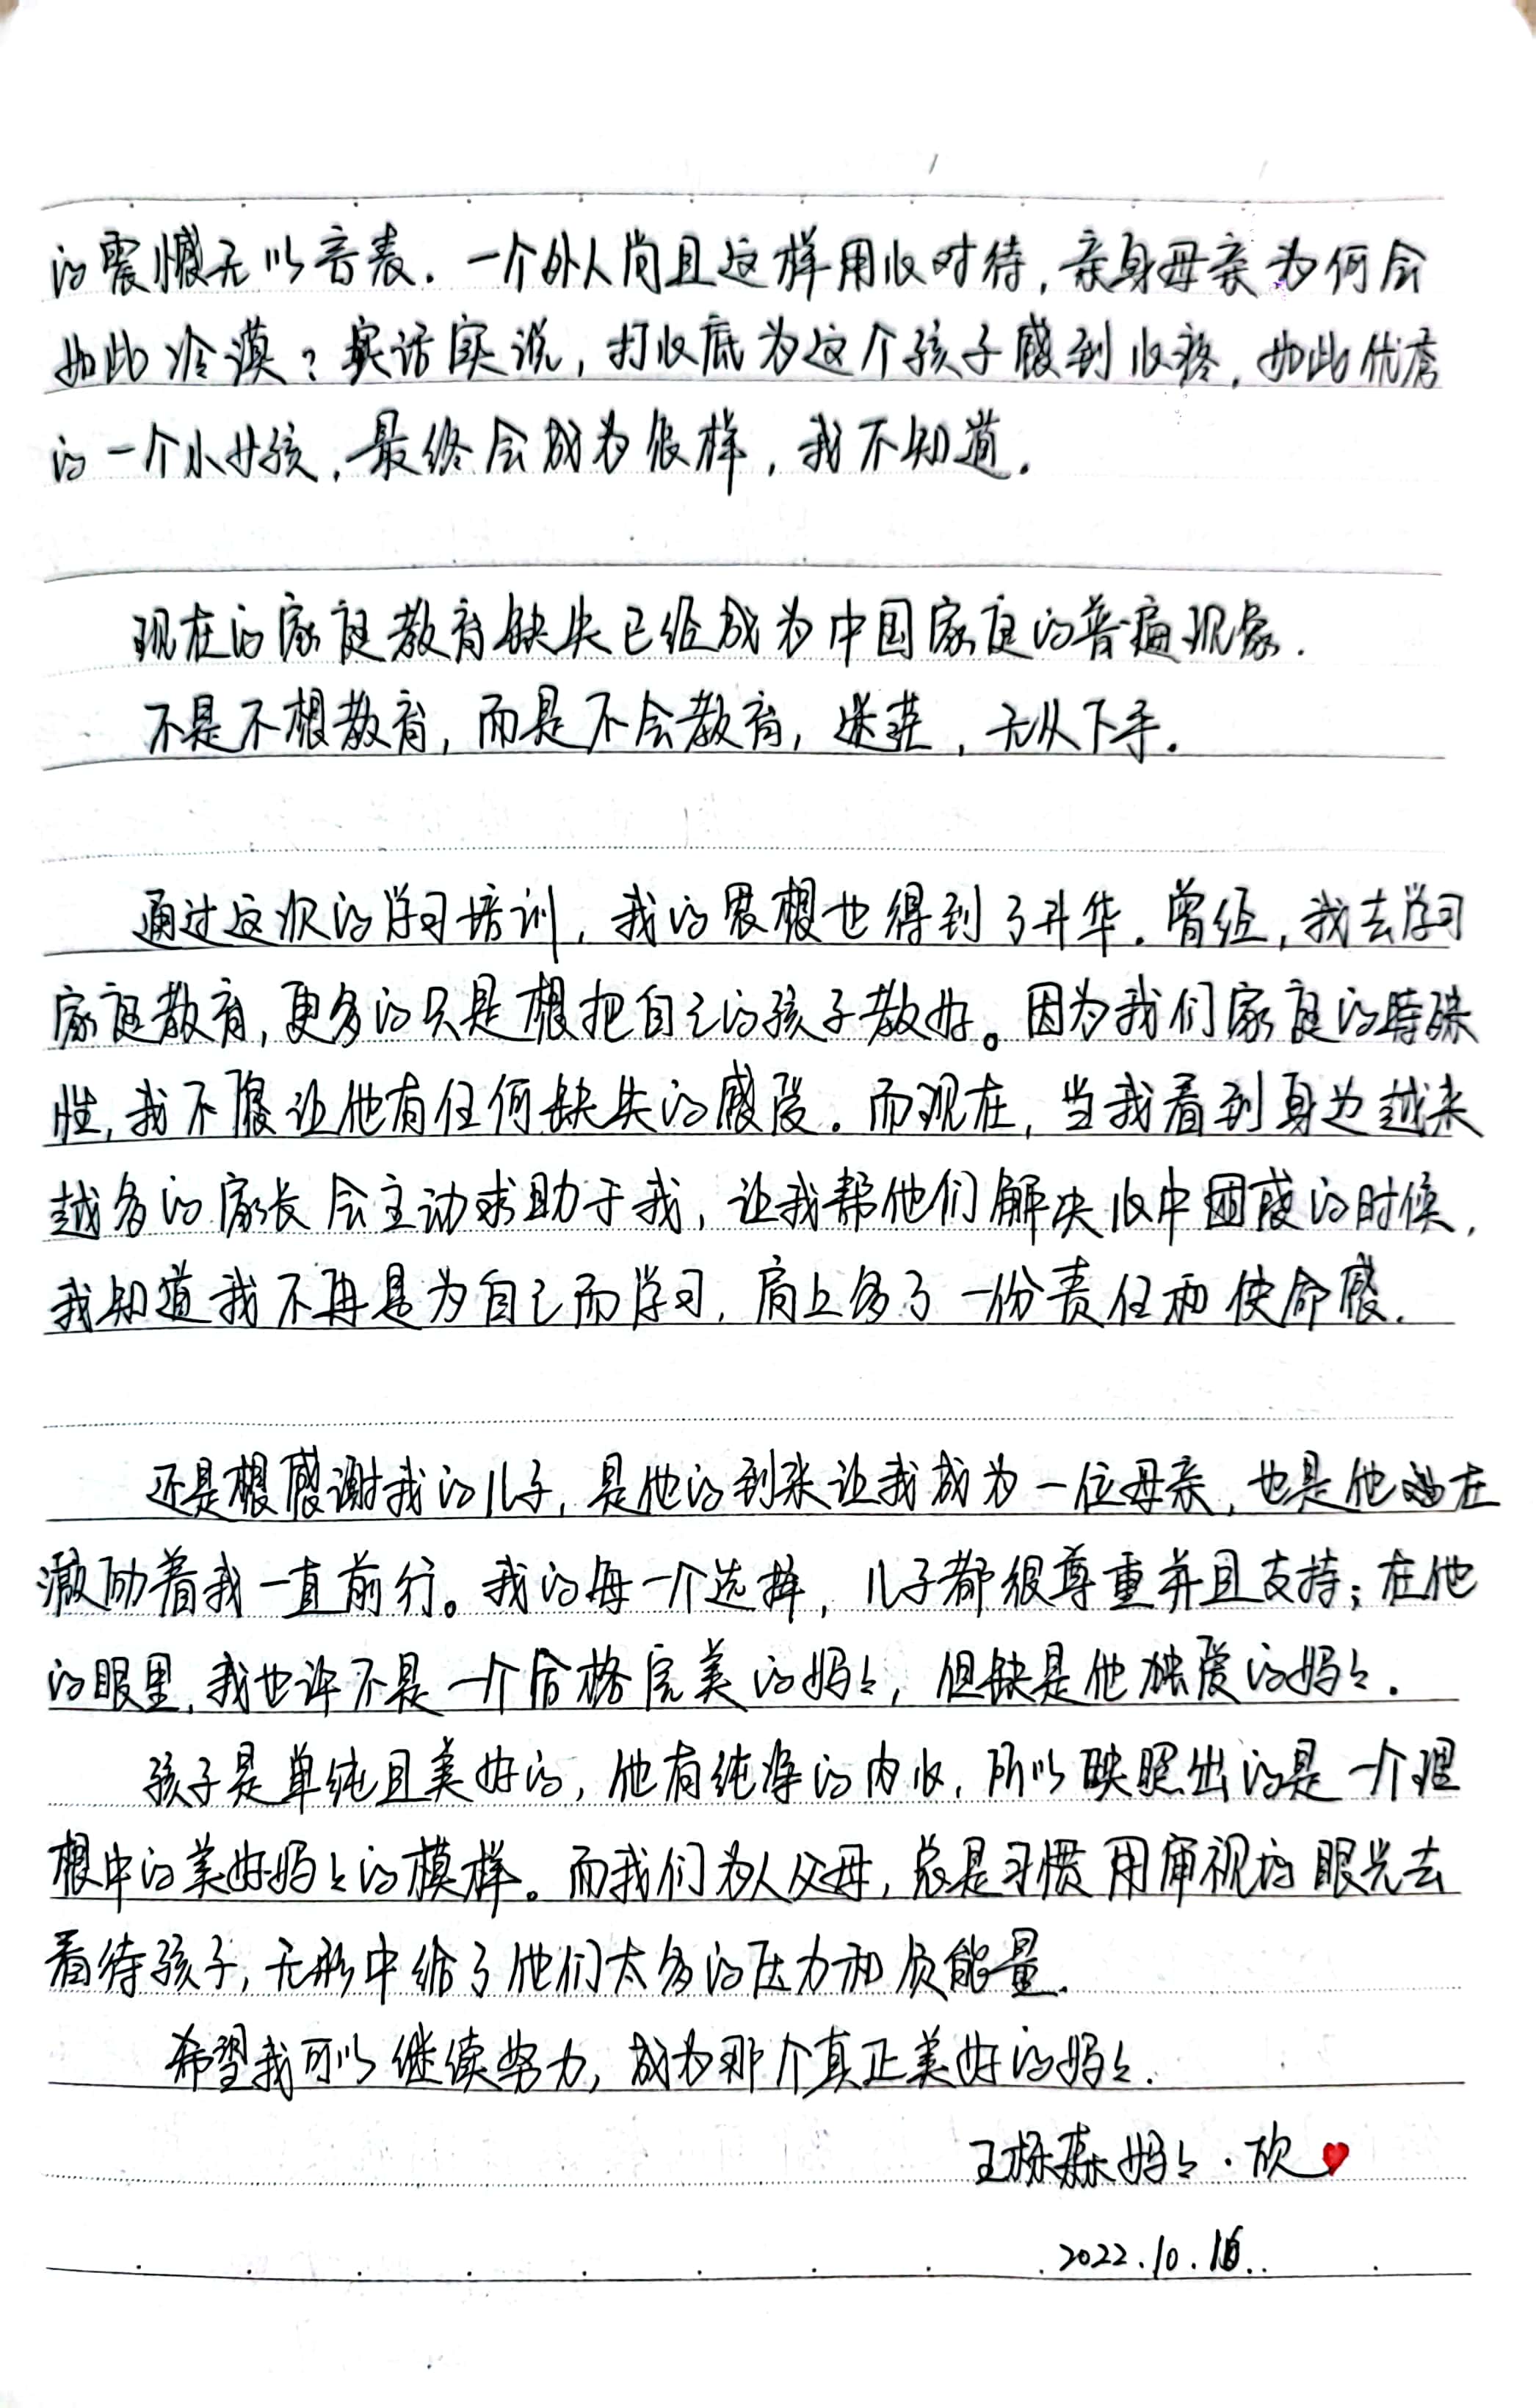 的震憾无以言表.一个外人尚且这样用心对待,亲身母亲为何会
如此冷漠?实话实说,打心底为这个孩子感到心疼,如此优秀
的一个小女孩,最终会成为怎样,我不知道.
现在的家庭教育缺失已经成为中国家庭的普遍现象.
不是不想教育,而是不会教育,迷茫,无从下手.
通过这次的学习培训,我的思想也得到了升华.曾经,我去学习
家庭教育,更多的只是想把自己的孩子教好。因为我们家庭的特殊
性,我不愿让他有任何缺失的感受。而现在,当我看到身边越来
越多的家长会主动求助于我,让我帮他们解决心中困惑的时候,
我知道我不再是为自己而学习,肩上多了一份责任和使命感.
还是想感谢我的儿子,是他的到来让我成为一位母亲,也是他在
激励着我一直前行。我的每一个选择,儿子都很尊重并且支持;在他
的眼里,我也许不是一个合格完美的妈々,但缺是他独爱的妈々.
孩子是单纯且美好的,他有纯净的内心,所以映照出的是一个理
想中的美好妈々的模样。而我们为人父母,总是习惯用审视的眼光去
看待孩子,无形中给了他们太多的压力和负能量.
希望我可以继续努力,成为那个真正美好的妈々.
王栎森妈々·欣❤
2022.10.16.